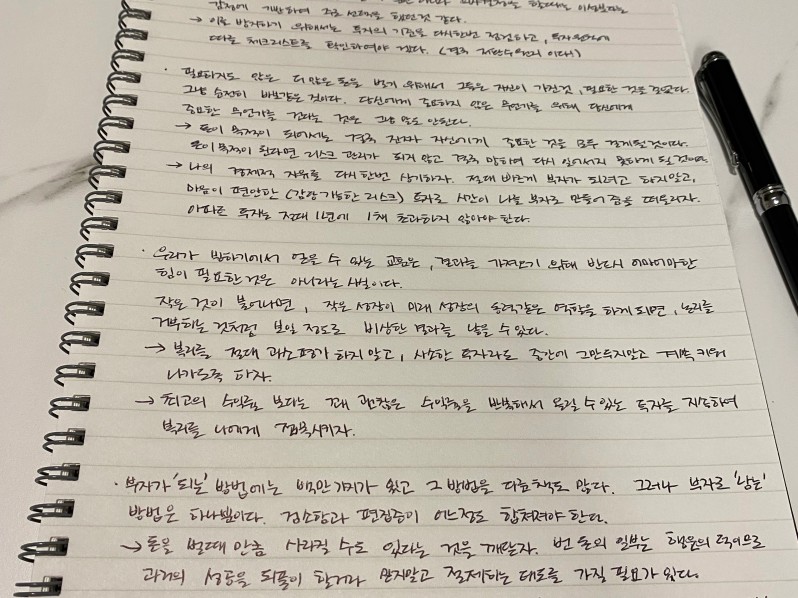 감정에 기반하여 주로 선택을 했던것 같다.
→ 이를 방지하기 위해서는 투자의 기준을 다시한번 점검하고, 투자
따른 체크리스트를 확인하여야 겠다. (결국 저만수원이다!)
· 필요하지도 않은 더 많은 돈을 벌기 위해서 그들은 자신이 가진것, 필요한 것을 걸었다.
그냥 순전히 바보같은 것이다. 당신에게 중요하지 않은 무언가를 위해 당신에게
중요한 무언가를 건다는 것은 그냥 말도 안된다.
→ 돈이 목적이 되어서는 결국 진짜 자신에게 중요한 것을 모두 잃게될 것이다.
돈이 목적이 된다면 리스크 관리가 되지 않고 결국 망하여 다시 일어서지 못하게 될 것이다.
→ 나의 경제적 자유를 다시한번 상기하자. 절대 빠르게 부자가 되려고 하지말고,
마음이 편안한 (감당가능한 리스크) 투자로 시간이 나를 부자로 만들어 줌을 떠올리자.
아파트 투자는 절대 1년에 1채 초과하지 않아야 한다.
· 우리가 빙하기에서 얻을 수 있는 교훈은, 결과를 가져오기 위해 반드시 어마어마한
힘이 필요한 것은 아니라는 사실이다.
작은 것이 불어나면, 작은 성장이 미래 성장의 동력같은 역할을 하게 되면, 논리를
거부하는 것처럼 보일 정도로 비상한 결과를 낳을 수 있다.
→ 복리를 절대 과소평가 하지 말고, 사소한 투자라도 중간에 그만두지말고 계속 키워
나가도록 하자.
→ 최고의 수익률 보다는 꽤 괜찮은 수익률을 반복해서 올릴 수 있는 투자를 지속하여
복리를 나에게 접목시키자.
· 부자가 '되는' 방법에는 백만가지가 있고 그 방법을 다룬 책도 많다. 그러나 부자로 '남는'
방법은 하나뿐이다. 검소함과 편집증이 어느정도 합쳐져야 한다.
→ 돈을 벌때 만큼 사라질 수도 있다는 것을 깨닫자. 번 돈의 일부는 행운의 덕이므로
과거의 성공을 되풀이 할거라 믿지말고 절제하는 태도를 가질 필요가 있다.